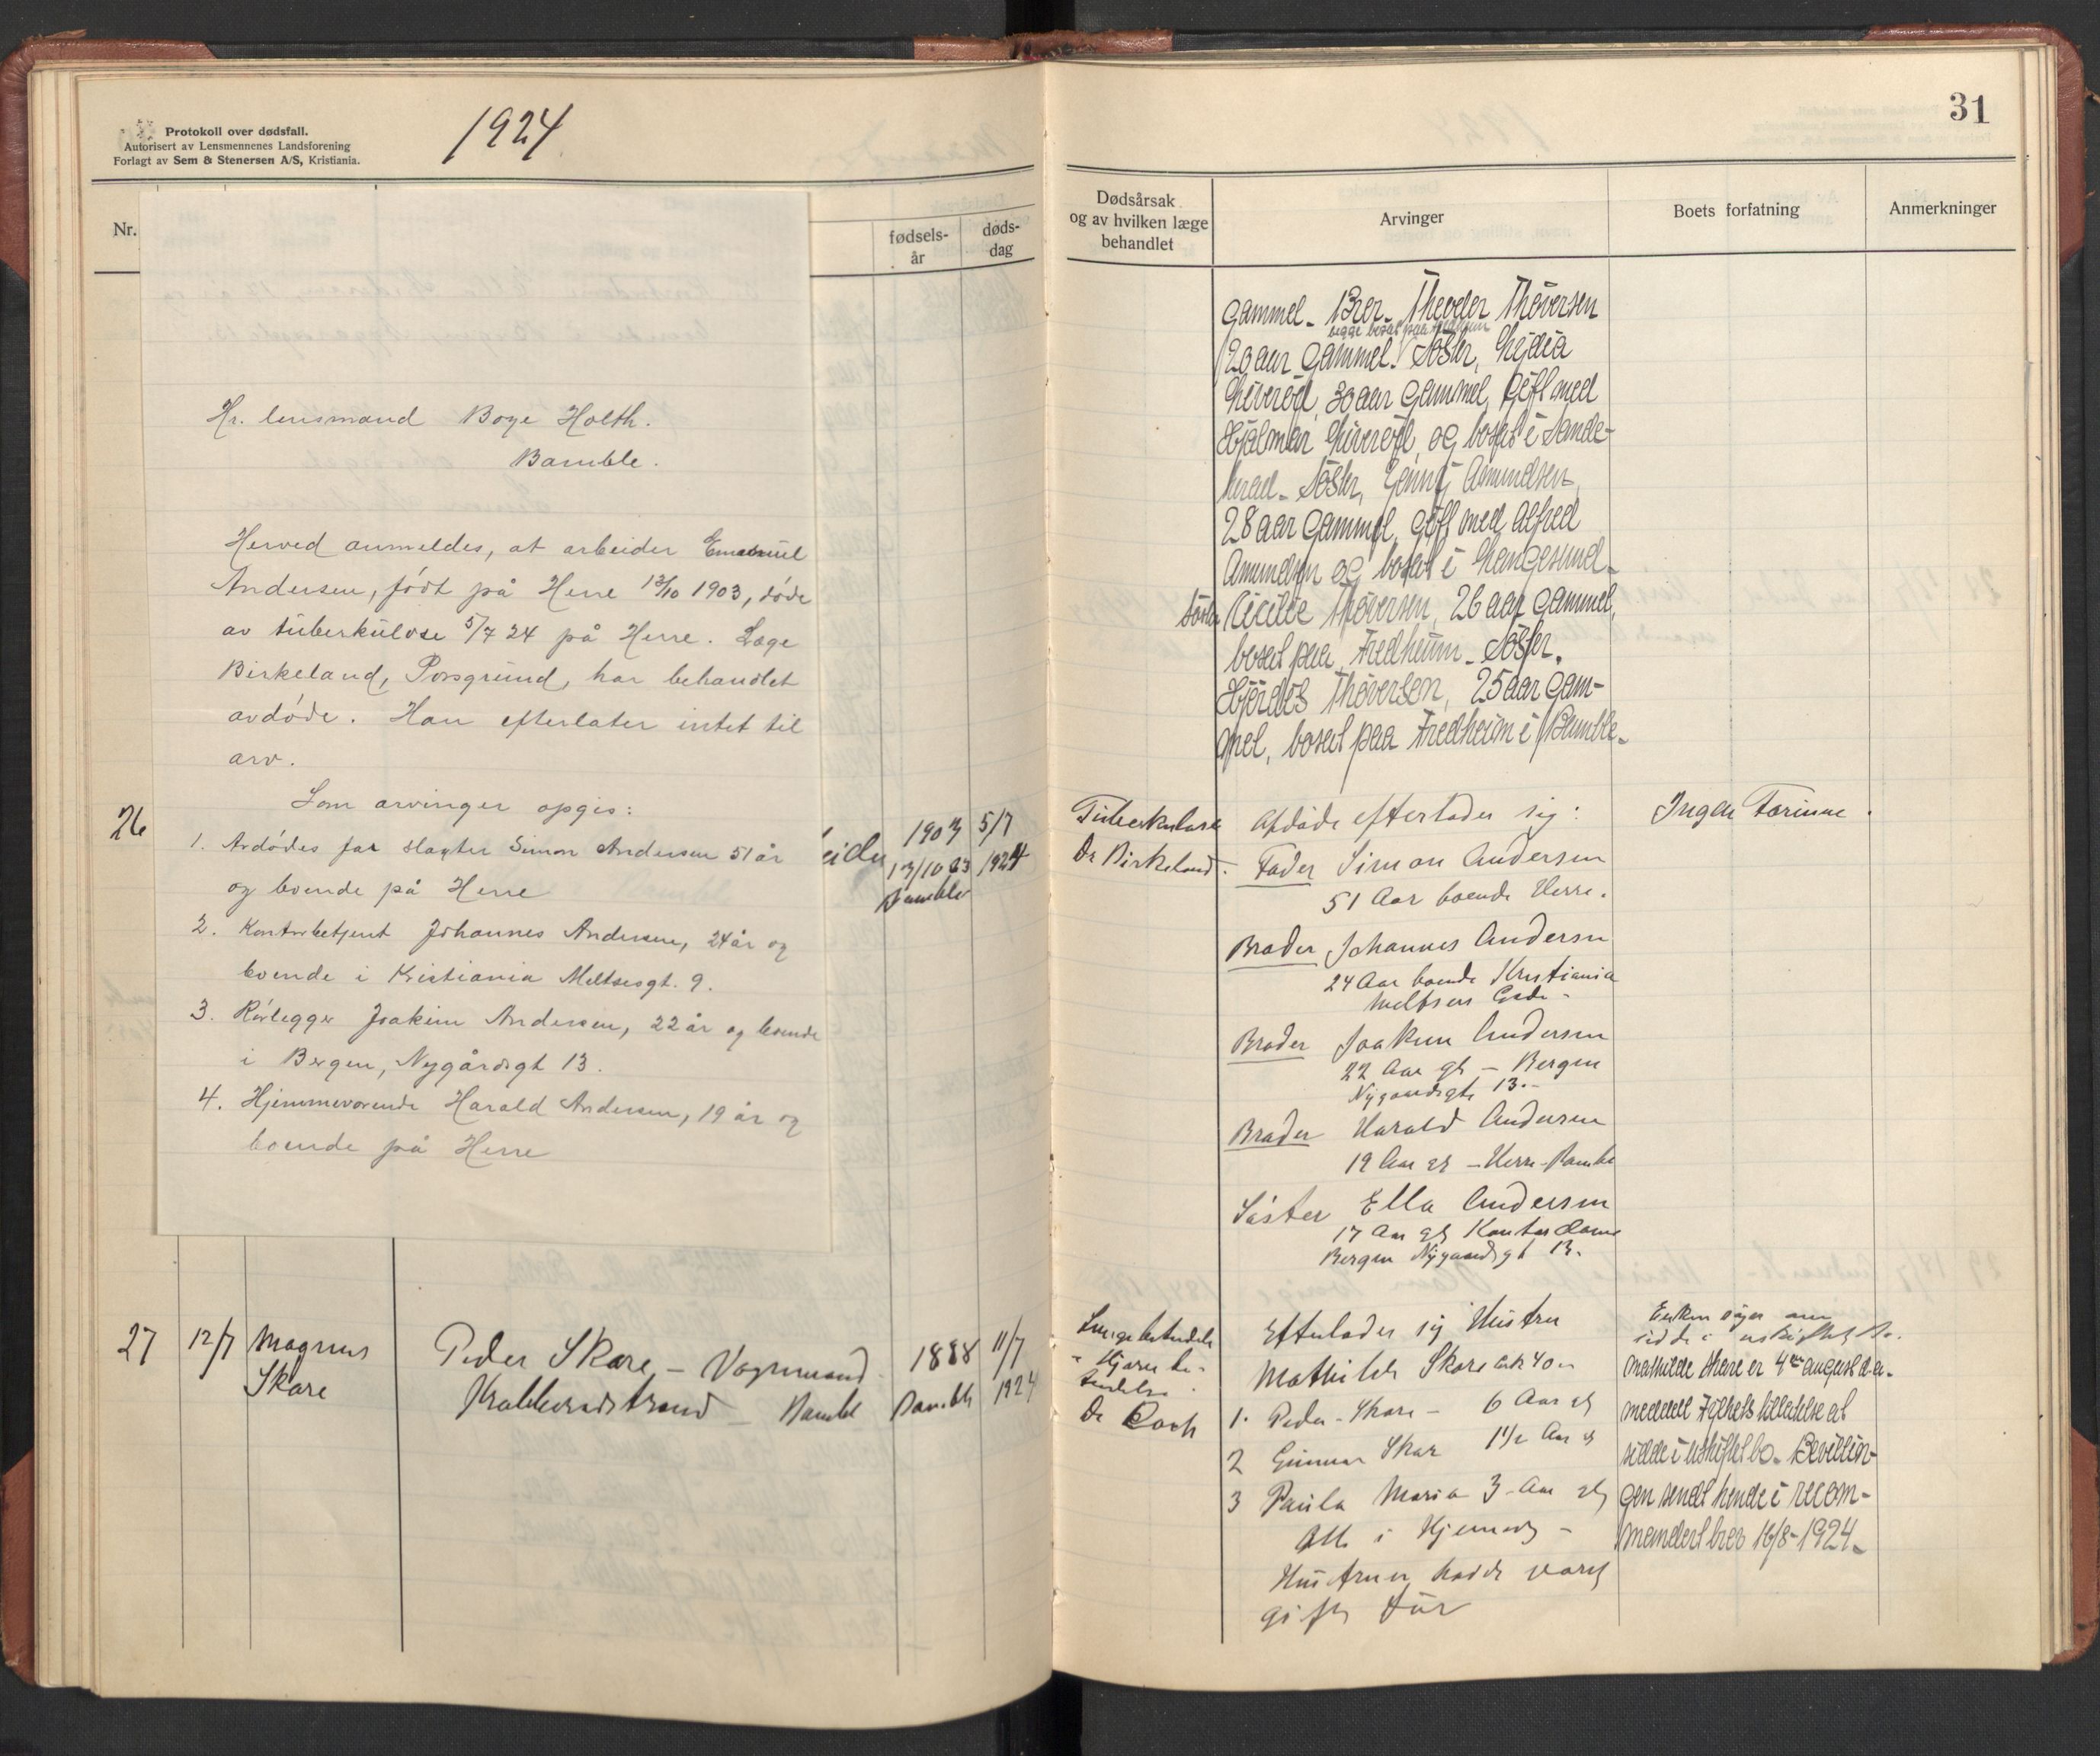 Protokoll over dødsfall.
Autorisert av Lensmennenes Landsforening
Forlagt av Sem & Stenersen A/S, Kristiania.
1924
Nr.
fødsels-
år
døds-
dag
Hr. lensmand Boye Holth.
Bamble.
Herved anmeldes, at arbeider Emanuel
Andersen, født på Herre 13/10 1903, døde
av tuberkuløse 5/7 24 på Herre. Læge
Birkeland, Porsgrund, har behandlet
avdøde. Han efterlater intet til
arv.
Som arvinger opgis:
1. Avdødes far slagter Simon Andersen 51 år
og boende på Herre
2. Kontorbetjent Johannes Andersen, 24 år og
boende i Kristiania Meltzersgt. 9.
3. Rørlegger Joakim Andersen, 22 år og boende
i Bergen, Nygårdsgt 13.
4. Hjemmeværende Harald Andersen, 19 år og
boende på Herre
26
eider
1903
13/10 03
Bamble
5/7
1924
27
12/7
Magnus
Skare
Peder Skare - Vognmand
Krabberødstrand - Bamble
1888
Bamble
11/7
1924
31
Dødsårsak
og av hvilken læge
behandlet
Arvinger
Boets forfatning
Anmerkninger
gammel - Bror - Theodor Thoversen
begge bosat paa Fredheim
20 aar gammel. Søster,
30 aar gammel, gift med
Hjalmar og bosat i Sande-
herad - Søster, Jenny Amundsen
28 aar gammel, gift med Alfred
Amundsen og bosat i Langesund -
Søster Cecilie Thoversen, 26 aar gammel,
bosat paa Fredheim - Søster,
Hjørdis Thoversen, 25 aar gam-
mel, bosat paa Fredheim i Bamble -
Tuberkulose
Dr Birkeland.
Afdøde efterlader sig:
Fader Simon Andersen
51 Aar boende Herre.
Broder Johannes Andersen
24 Aar boende Kristiania
Meltsers Gade -
Broder Joakim Andersen
22 Aar gl - Bergen
Nygaardsgt 13. -
Broder Harald Andersen
19 Aar gl - Herre - Bamble
Søster Ella Andersen
17 Aar gl Kontordame
Bergen Nygaardsgt 13.
Ingen Formue.
Lungebetendelse
- Hjerne be-
tendelse.
Dr Coch
Efterlader sig Hustru
Mathilde Skare 40
1. Peder - Skare - 6 Aar gl
2 Gunnar Skare 1 1/2 Aar gl
3 Paula Maria 3 Aar gl
Alle i Hjemmet -
Hustruen havde været
gift før
Enken søger om
sidde i uskiftet bo.
Mathilde Skare er 4de august d.a.
meddelt tilladelse at
sidde i uskiftet bo - Bevillin-
gen sendt hende i recom-
mandert brev 16/8-1924 -